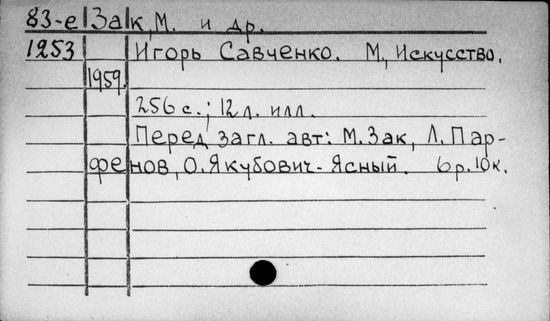 83-е Зак, М. и др.
1253 Игорь Савченко. М, Искусство.
1959.
256 с.; 12 л. илл.
Перед загл. авт: М. Зак, Л. Пар-
фенов, О. Якубович-Ясный. 6 р. 10 к.